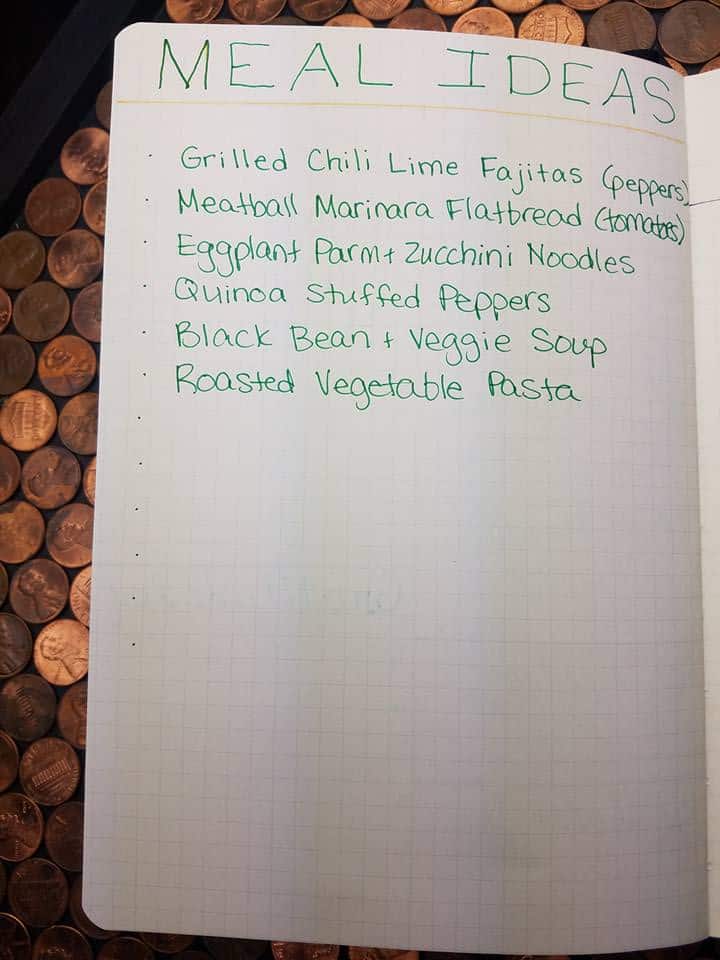 MEAL IDEAS
· Grilled Chili Lime Fajitas (peppers)
· Meatball Marinara Flatbread (tomatoes)
· Eggplant Parm + Zucchini Noodles
· Quinoa Stuffed Peppers
· Black Bean + Veggie Soup
· Roasted Vegetable Pasta